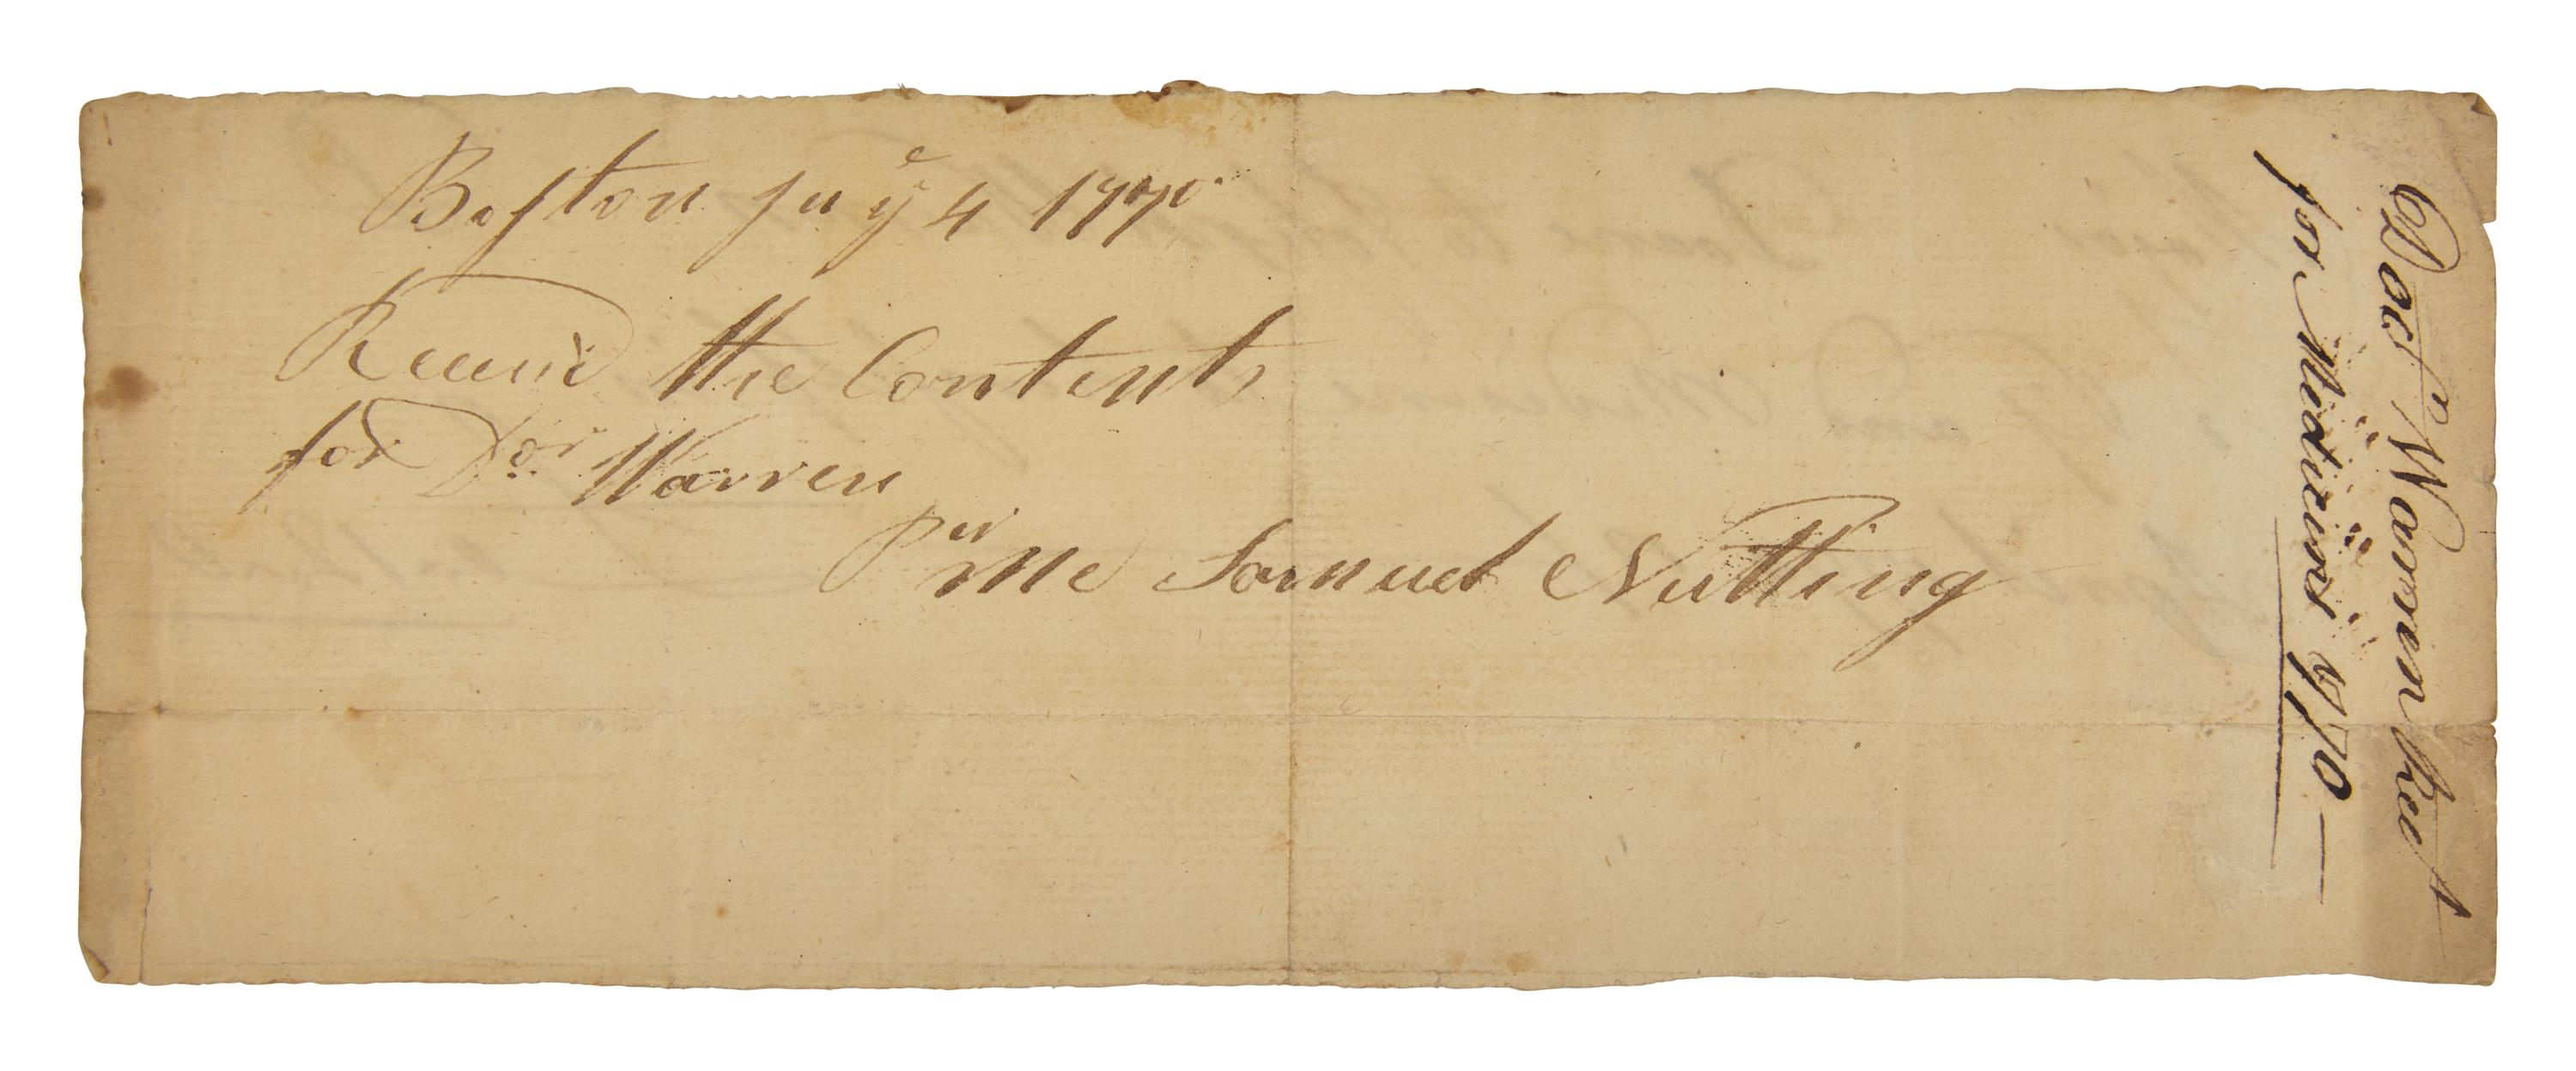 Boston Ju yᵉ 4 1770
Receivd the Contents
for Dor. Warren
Per Me Samuel Nutting
Docr Warren Rect
for Medicins 1770